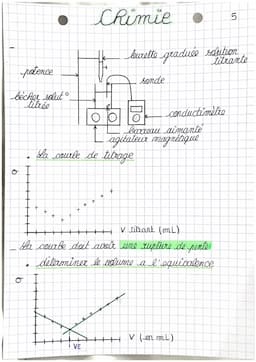 Chimie
5
burette graduée solution
titrante
potence
sonde
bécher solut°
titrée
conductimètre
barreau aimanté
agitateur magnétique
• La courbe de titrage
σ
V titrant (mL)
_ La courbe doit avoir une rupture de pente
• déterminer le volume a l'equivalence
σ
VE
V (en mL)